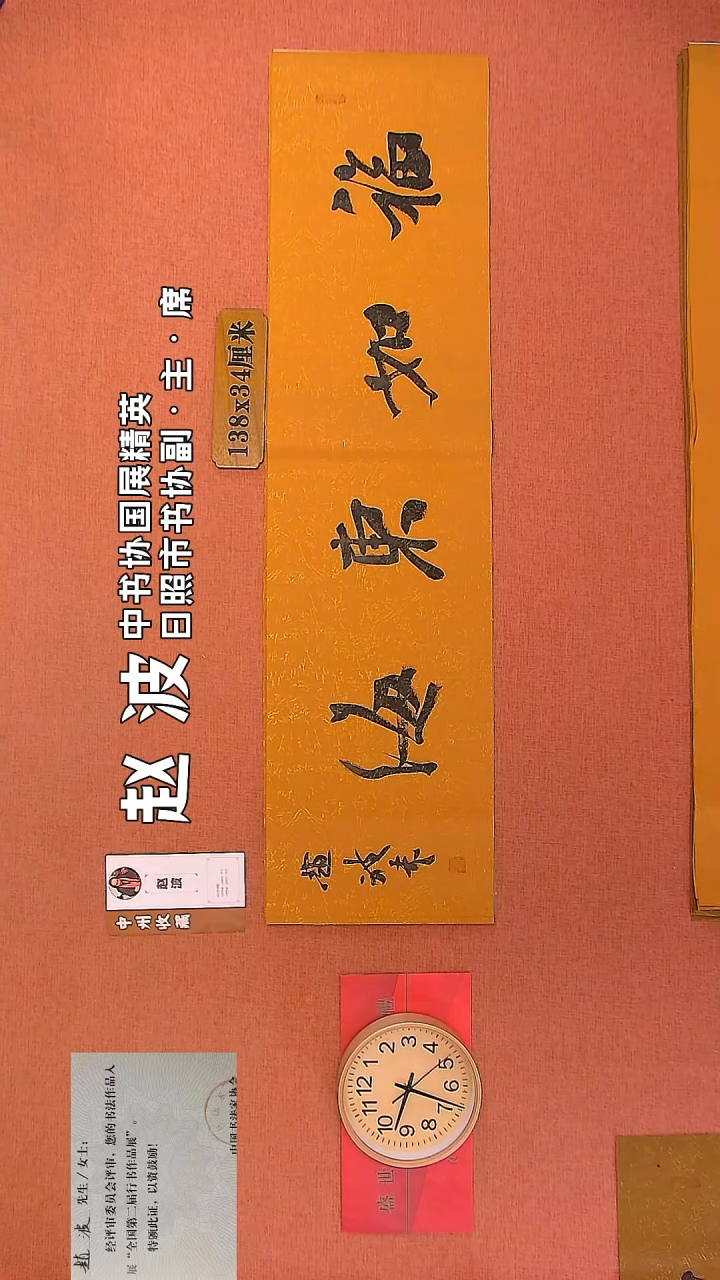 赵波
中书协国展精英
日照市书协副·主·席
138x34厘米
福如東海
趙波書
赵波
中州收藏
趙波 先生/女士:
经评审委员会评审，您的书法作品入
展“全国第二届行书作品展”。
特颁此证，以资鼓励!
中国书法家协会
盛世
12
1
2
3
4
5
6
7
8
9
10
11